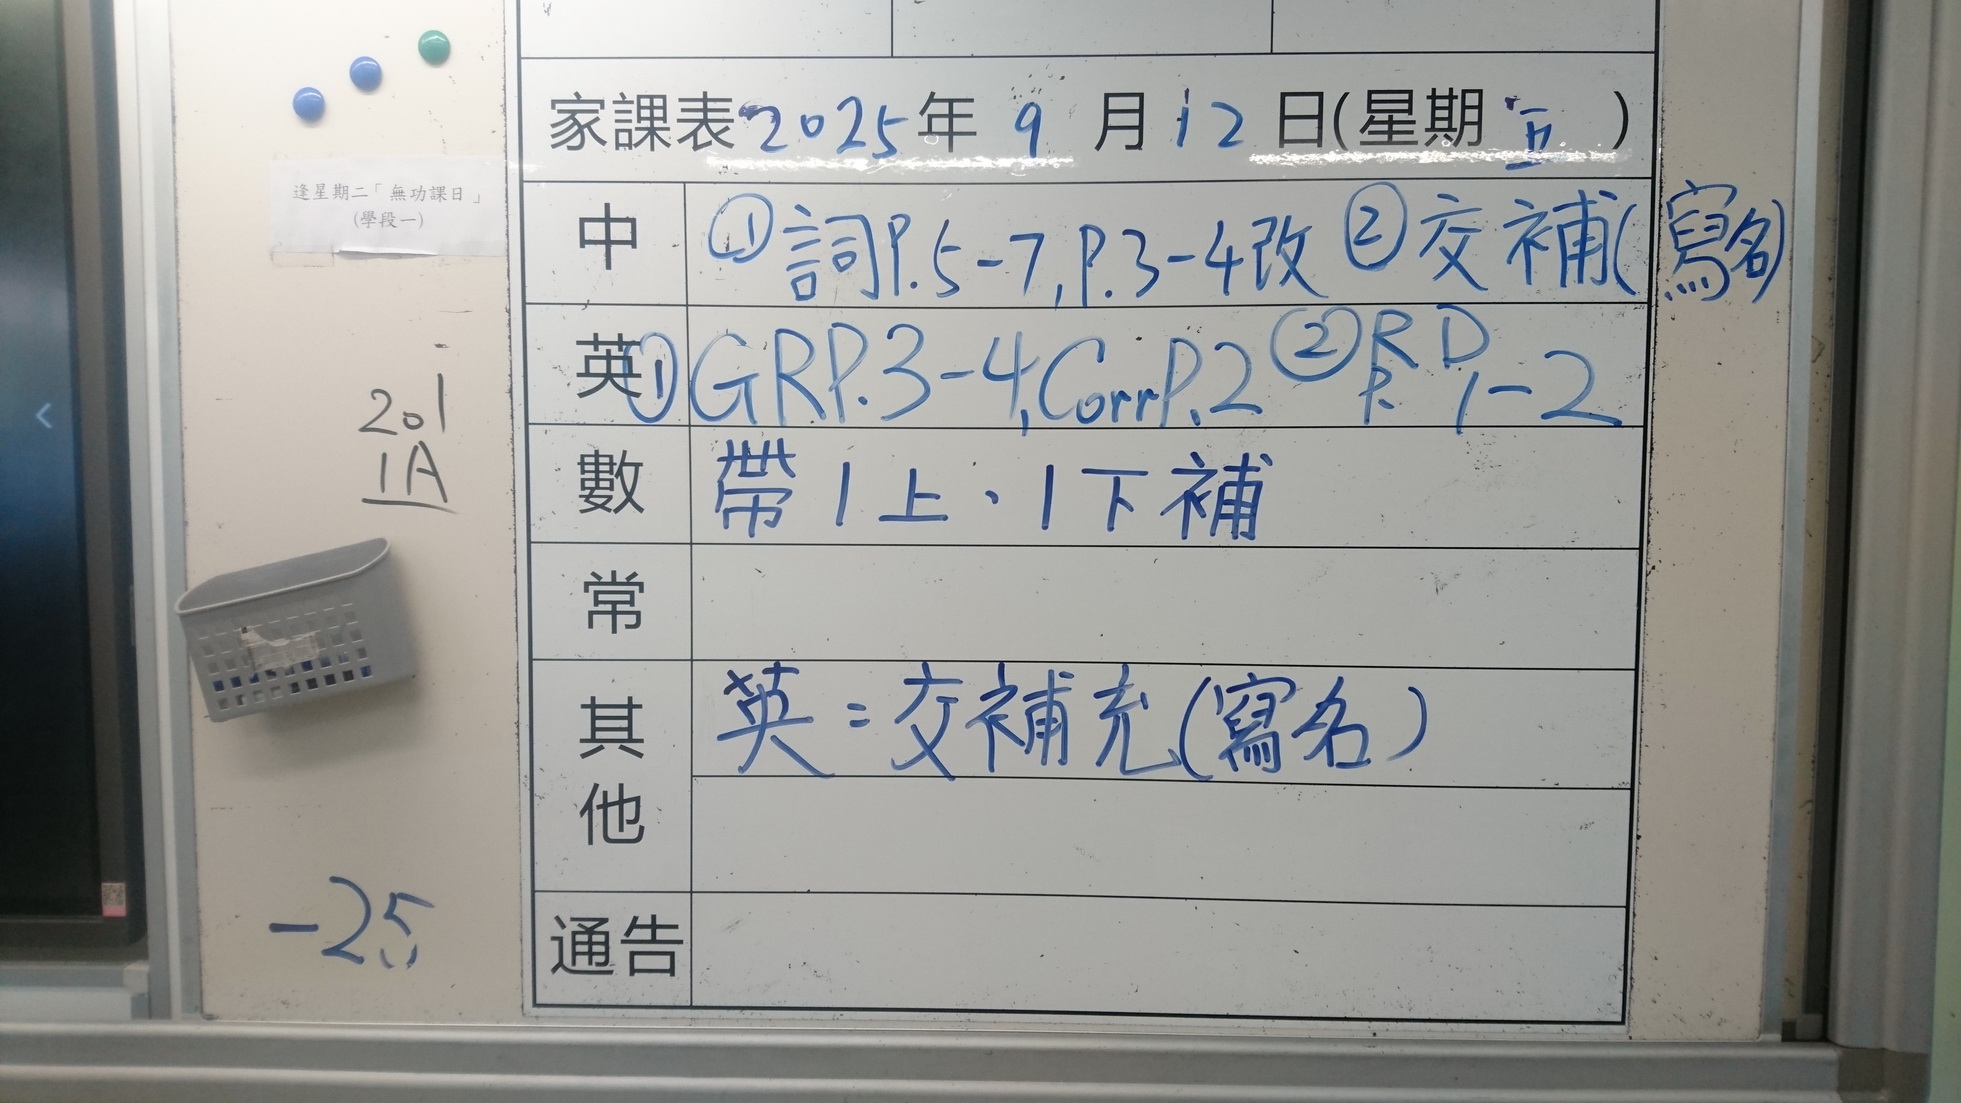 家課表 2025年 9 月 12 日(星期 五 )
逢星期二「無功課日」
(學段一)
中 ① 詞P.5-7, P.3-4改 ② 交補(寫名)
英 ① GRP.3-4, CorrP.2 ② RD P. 1-2
201
1A
數 帶1上、1下補
常
其他 英：交補充(寫名)
-25
通告